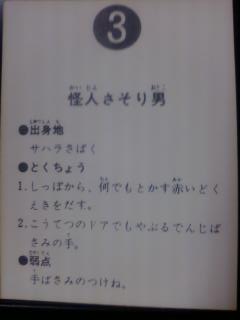 3
怪人さそり男
●出身地
サハラさばく
●とくちょう
1.しっぽから、何でもとかす赤いどく
えきをだす。
2.こうてつのドアでもやぶるでんじば
さみの手。
●弱点
手ばさみのつけね。